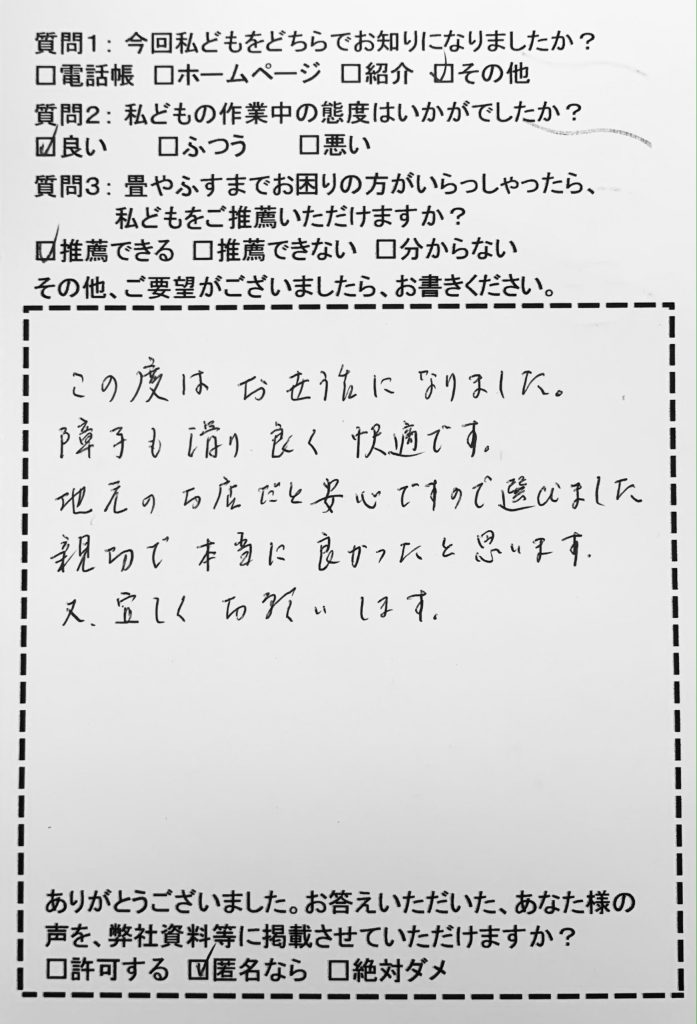 質問1：今回私どもをどちらでお知りになりましたか？
□電話帳 □ホームページ □紹介 ☑その他
質問2：私どもの作業中の態度はいかがでしたか？
☑良い □ふつう □悪い
質問3：畳やふすまでお困りの方がいらっしゃったら、
私どもをご推薦いただけますか？
☑推薦できる □推薦できない □分からない
その他、ご要望がございましたら、お書きください。
この度は お世話に なりました。
障子も 滑り 良く 快適です。
地元の お店だと安心ですので選びました
親切で 本当に 良かったと思います.
又、宜しく お願い します.
ありがとうございました。お答えいただいた、あなた様の
声を、弊社資料等に掲載させていただけますか？
□許可する ☑匿名なら □絶対ダメ